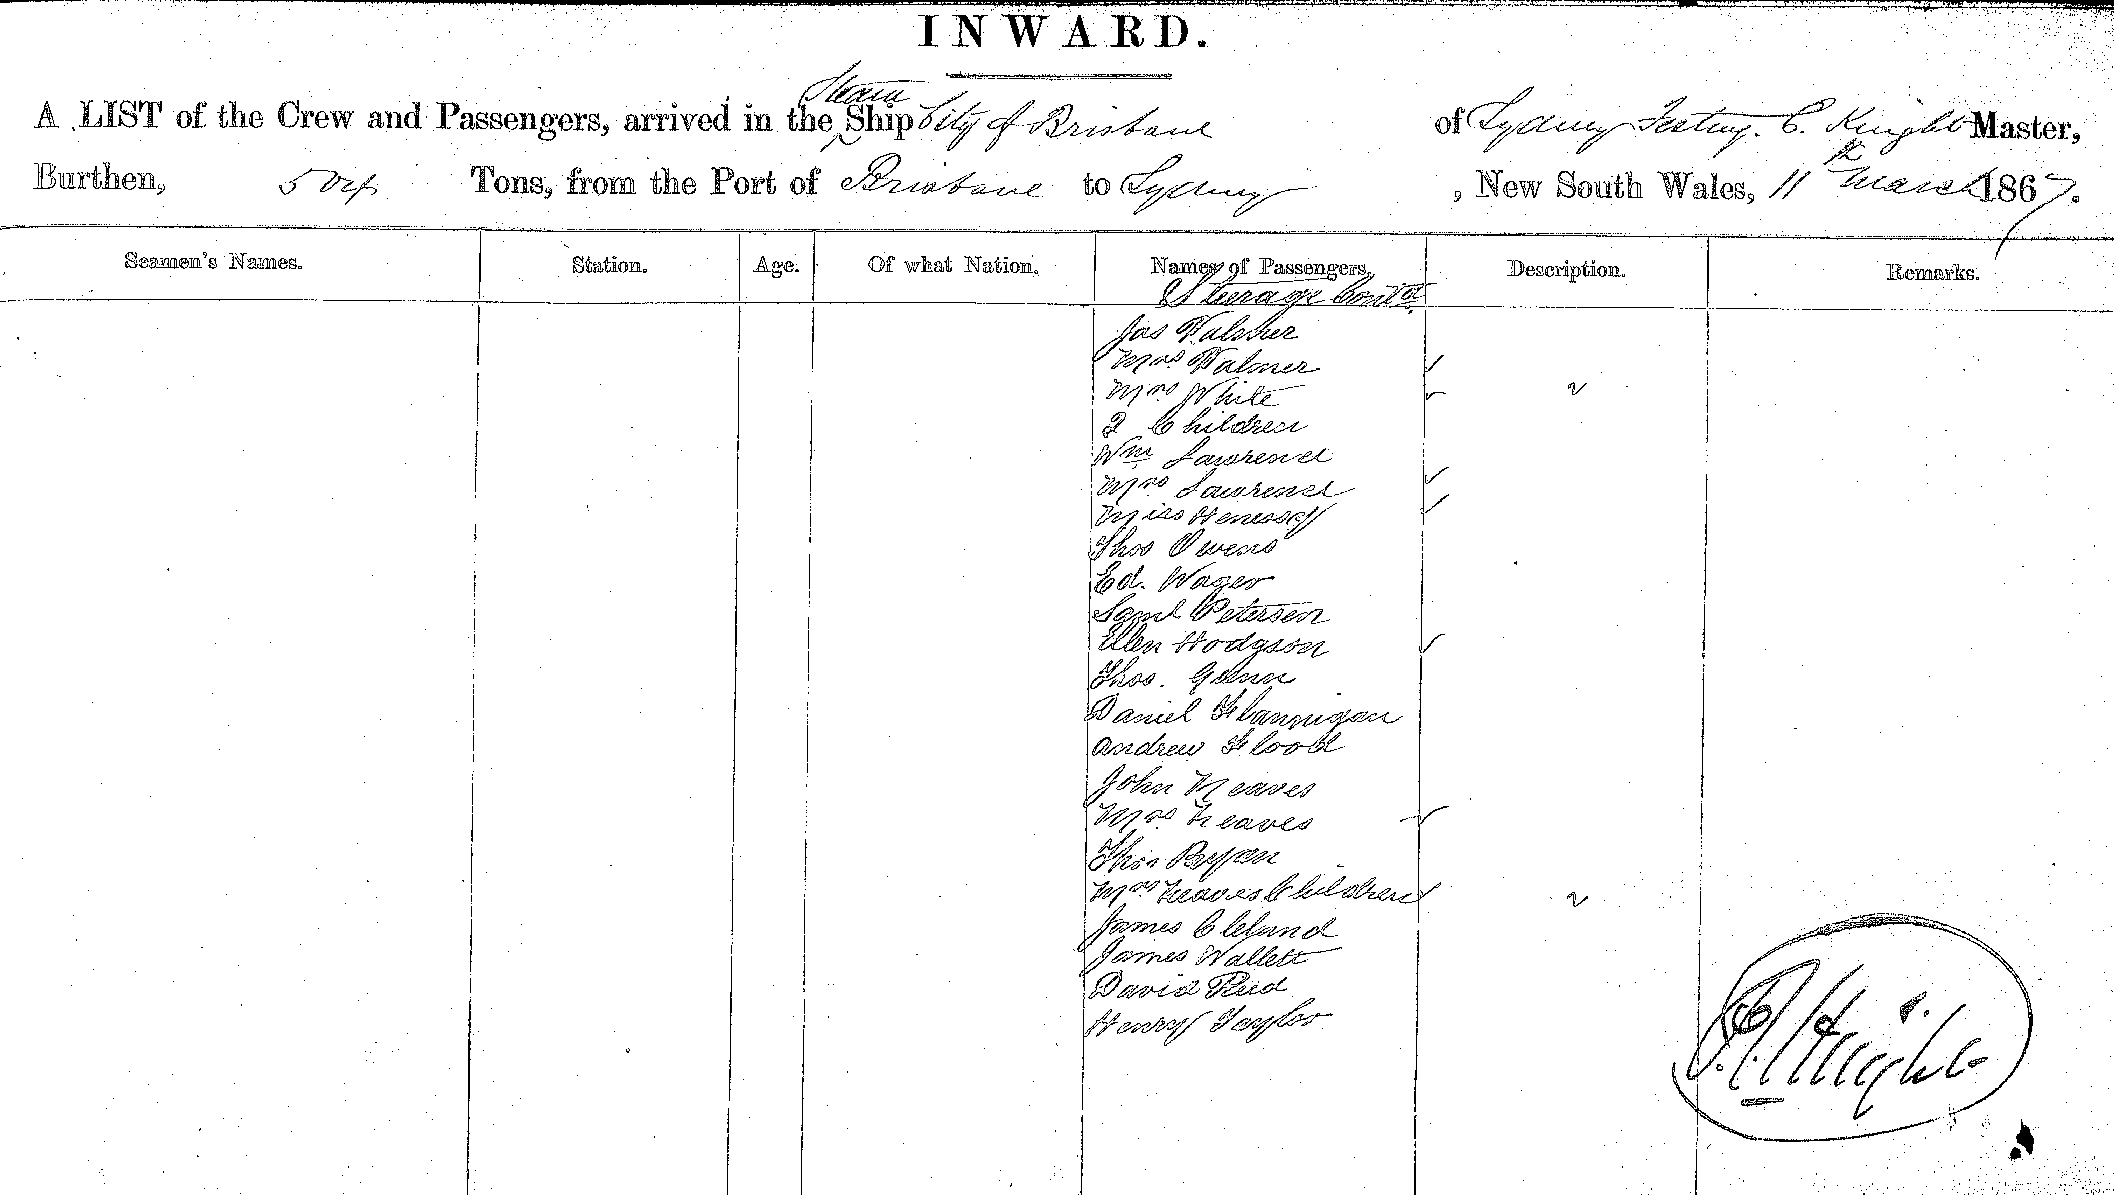 INWARD.
Steam
A LIST of the Crew and Passengers, arrived in the Ship City of Brisbane of Sydney Festing. C. Knight Master,
Burthen, 504 Tons, from the Port of Brisbane to Sydney, New South Wales, 11th March 1867.
Seamen's Names. Station. Age. Of what Nation. Names of Passengers. Description. Remarks.
Steerage Contd.
Jas Palmer
Mrs Palmer
Mrs White
2 Children
Wm Lawrence
Mrs Lawrence
Miss Henessy
Thos Owens
Ed. Wager
Saml Petersen
Ellen Hodgson
Thos. Gunn
Daniel Flannigan
Andrew Flood
John Neaves
Mrs. Neaves
Thos Bryan
Mrs Neaves Children
James Cleland
James Wallett
David Reid
Henry Taylor
Knight